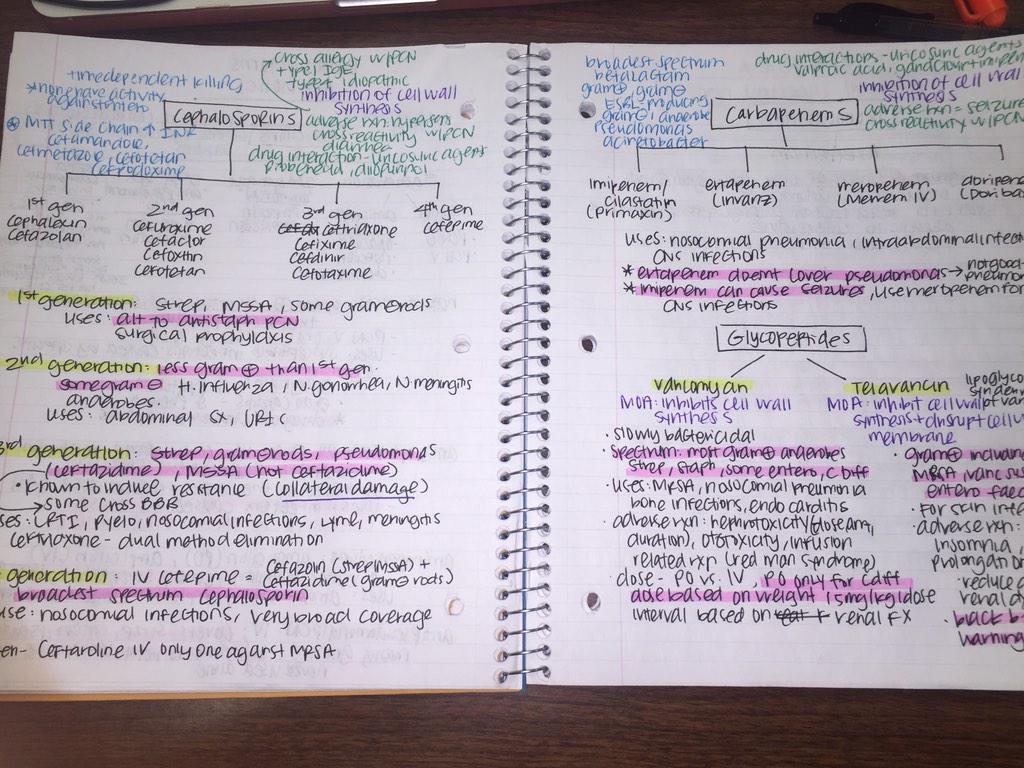 cross allergy w/PCN
type I IgE
idiopathic
time dependent killing
inhibition of cell wall
synthesis
* none have activity
against entero
Cephalosporins
adverse rxn hypersens
cross reactivity w/PCN
diarrhea
MTT side chain ↑ INR
cefamandole,
cefmetazole, cefotetan
cefpodoxime
drug interaction - uricosuric agent
probenecid, allopurinol
1st gen
cephalexin
cefazolan
2nd gen
cefuroxime
cefaclor
cefoxitin
cefotetan
3rd gen
ceftriaxone
cefixime
cefdinir
cefotaxime
4th gen
cefepime
1st generation: strep, MSSA, some gram⊖rods
uses: alt to antistaph PCN
surgical prophylaxis
2nd generation: less gram ⊕ than 1st gen.
some gram ⊖ H. influenza, N. gonorrhea, N. meningitis
anaerobes.
uses: abdominal sx, URIs
3rd generation: strep, gram⊖rods, pseudomonas
(ceftazidime), MSSA (not ceftazidime)
• known to induce resistance (collateral damage)
→ some cross BBB
uses: LRTI, pyelo, nosocomial infections, lyme, meningitis
ceftriaxone - dual method elimination
generation: IV cefepime = cefazolin (strep MSSA) +
ceftazidime (gram⊖ rods)
broadest spectrum cephalosporin
use: nosocomial infections, very broad coverage
gen - ceftaroline IV only one against MRSA
broadest spectrum
betalactam
gram⊕, gram⊖
ESBL-producing
gram⊖, anaerobe
pseudomonas
acinetobacter
drug interactions - uricosuric agents
valproic acid, ganciclovir + imipenem
inhibition of cell wall
synthesis
Carbapenems
adverse rxn = seizure
cross reactivity w/PCN
imipenem/
cilastatin
(primaxin)
ertapenem
(invanz)
meropenem
(merrem IV)
doripene
(Doriba
uses: nosocomial pneumonia, intraabdominal infect
CNS infections
* ertapenem doesnt cover pseudomonas → not good
pneumon
* imipenem can cause seizures, use meropenem for
CNS infections
Glycopeptides
vancomycin
MOA: inhibits cell wall
synthesis
• slowly bactericidal
• spectrum: most gram⊕ anaerobes
strep, staph, some entero, c diff
• uses: MRSA, nosocomial pneumonia
bone infections, endocarditis
• adverse rxn: nephrotoxicity (dose am,
duration), ototoxicity, infusion
related rxn (red man syndrome)
• dose - PO vs. IV, PO only for cdiff
dose based on weight 15mg/kg/dose
interval based on renal FX
telavancin
lipoglyco
MOA: inhibit cell wall
synthesis + disrupt cell
membrane
• gram⊕ includin
MRSA, vanc sus
entero faec
• for skin infe
• adverse rxn:
insomnia,
prolongation
• reduce
renal d
• black b
warning